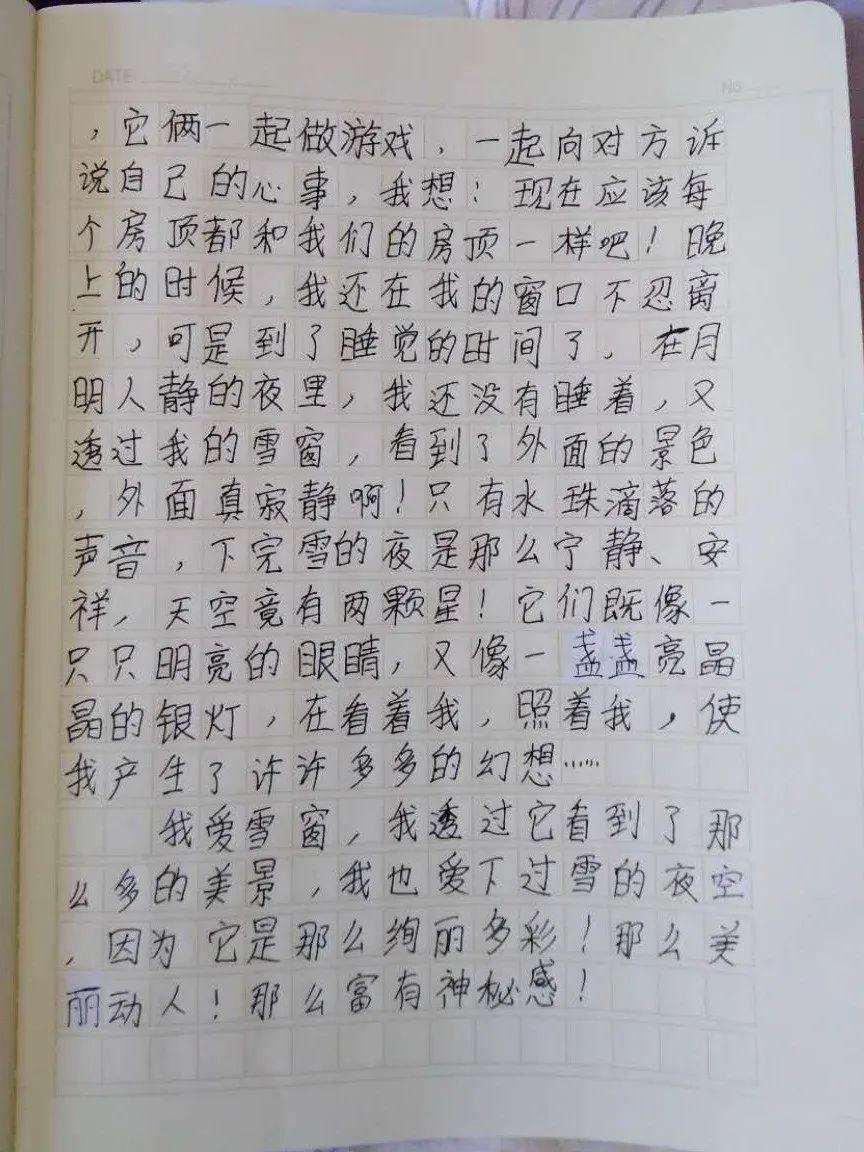 DATE
No
，它俩一起做游戏，一起向对方诉
说自己的心事，我想：现在应该每
个房顶都和我们的房顶一样吧！晚
上的时候，我还在我的窗口不忍离
开，可是到了睡觉的时间了，在月
明人静的夜里，我还没有睡着，又
透过我的雪窗，看到了外面的景色
，外面真寂静啊！只有水珠滴落的
声音，下完雪的夜是那么宁静、安
祥，天空竟有两颗星！它们既像一
只只明亮的眼睛，又像一盏盏亮晶
晶的银灯，在看着我，照着我，使
我产生了许许多多的幻想……
我爱雪窗，我透过它看到了那
么多的美景，我也爱下过雪的夜空
，因为它是那么绚丽多彩！那么美
丽动人！那么富有神秘感！